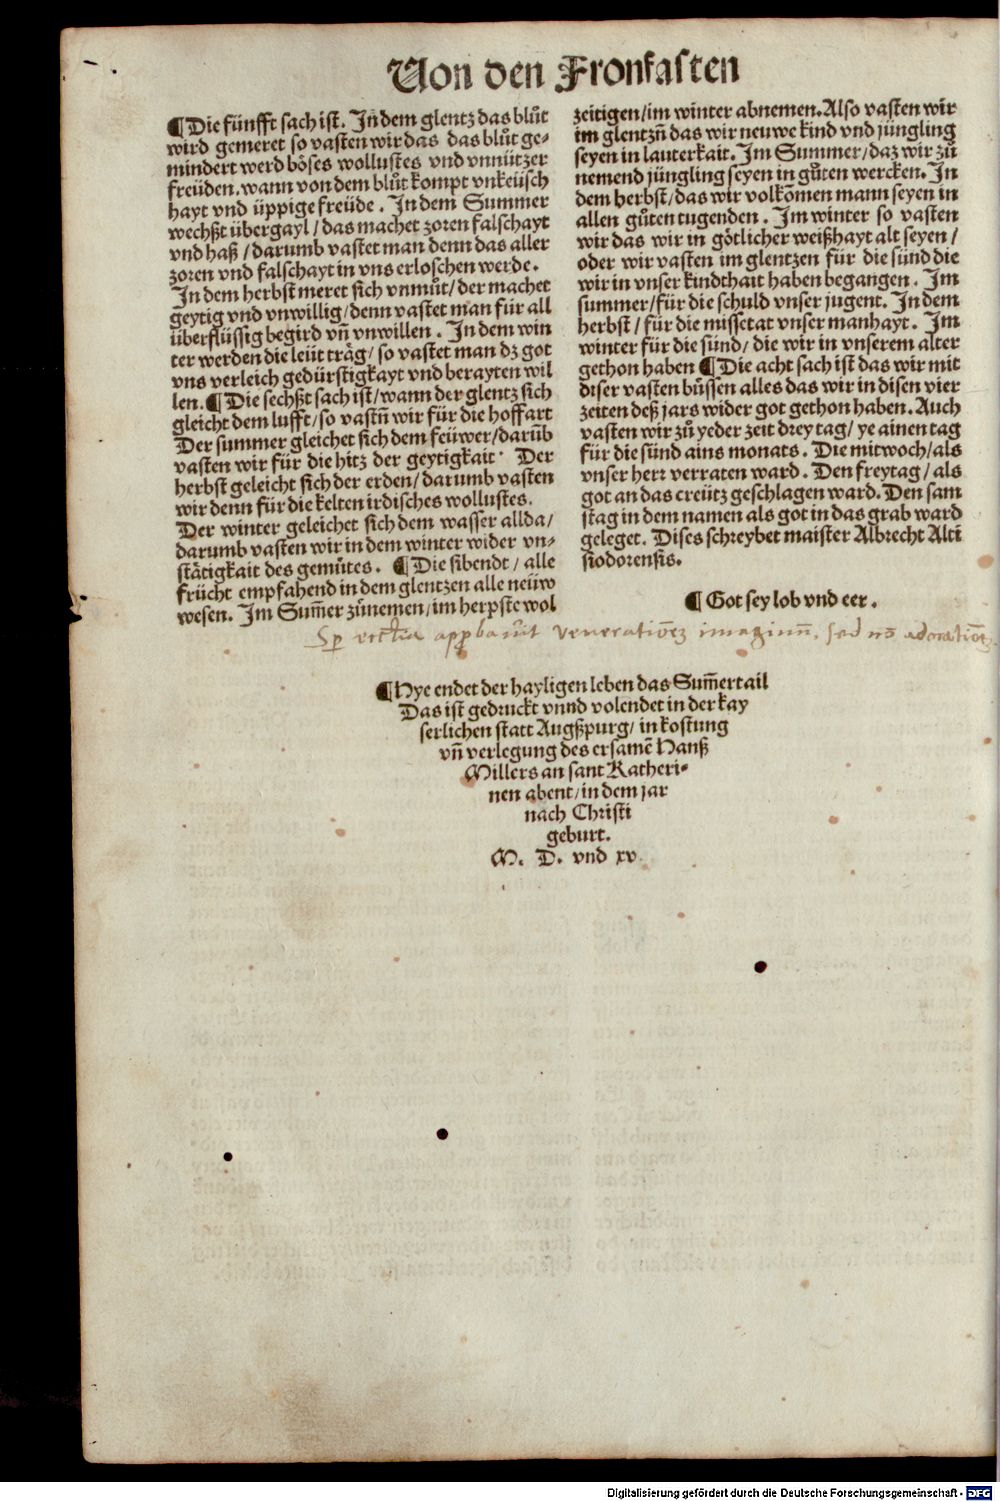 Von den Fronfasten
¶Die fünfft sach ist. In dem glentz das blůt
wird gemeret so vasten wir das das blůt ge-
mindert werd böses wollustes vnd vnnützer
freüden. wann von dem blůt kompt vnkeüsch
hayt vnd üppige freüde. In dem Summer
wechßt übergayl/das machet zoren falschayt
vnd haß/darumb vastet man denn das aller
zoren vnd falschayt in vns erloschen werde.
In dem herbst meret sich vnmůt/der machet
geytig vnd vnwillig/denn vastet man für all
überflüssig begird vñ vnwillen. In dem win
ter werden die leüt träg/so vastet man dz got
vns verleich gedürstigkayt vnd berayten wil
len.¶Die sechßt sach ist/wann der glentz sich
gleicht dem lufft/so vastñ wir für die hoffart
Der summer gleichet sich dem feüwer/darūb
vasten wir für die hitz der geytigkait. Der
herbst geleicht sich der erden/darumb vasten
wir denn für die kelten irdisches wollustes.
Der winter geleichet sich dem wasser allda/
darumb vasten wir in dem winter wider vn-
stätigkait des gemütes. ¶Die sibendt/alle
frücht empfahend in dem glentzen alle neüw
wesen. Im Sum̄er zůnemen/im herpste wol
zeitigen/im winter abnemen.Also vasten wir
im glentzñ das wir neuwe kind vnd jüngling
seyen in lauterkait. Im Summer/daz wir zů
nemend jüngling seyen in gůten wercken. In
dem herbst/das wir volkōmen mann seyen in
allen gůten tugenden. Im winter so vasten
wir das wir in götlicher weißhayt alt seyen/
oder wir vasten im glentzen für die sünd die
wir in vnser kindthait haben begangen. Im
summer/für die schuld vnser jugent. In dem
herbst/für die missetat vnser manhayt. Im
winter für die sünd/die wir in vnserem alter
gethon haben ¶Die acht sach ist das wir mit
diser vasten büssen alles das wir in disen vier
zeiten deß jars wider got gethon haben. Auch
vasten wir zů yeder zeit drey tag/ye ainen tag
für die sünd ains monats. Die mitwoch/als
vnser herr verraten ward. Den freytag/als
got an das creütz geschlagen ward. Den sam
stag in dem namen als got in das grab ward
geleget. Dises schreybet maister Albrecht Alti
siodorensis.
¶Got sey lob vnd eer.
venerationē imaginū, sed nō adorationē
¶Hye endet der hayligen leben das Sum̄ertail
Das ist gedruckt vnnd volendet in der kay
serlichen statt Augßpurg/in kostung
vñ verlegung des ersamē Hanß
Millers an sant Katheri-
nen abent/in dem jar
nach Christi
geburt.
M. D. vnd xv.
Digitalisierung gefördert durch die Deutsche Forschungsgemeinschaft - DFG